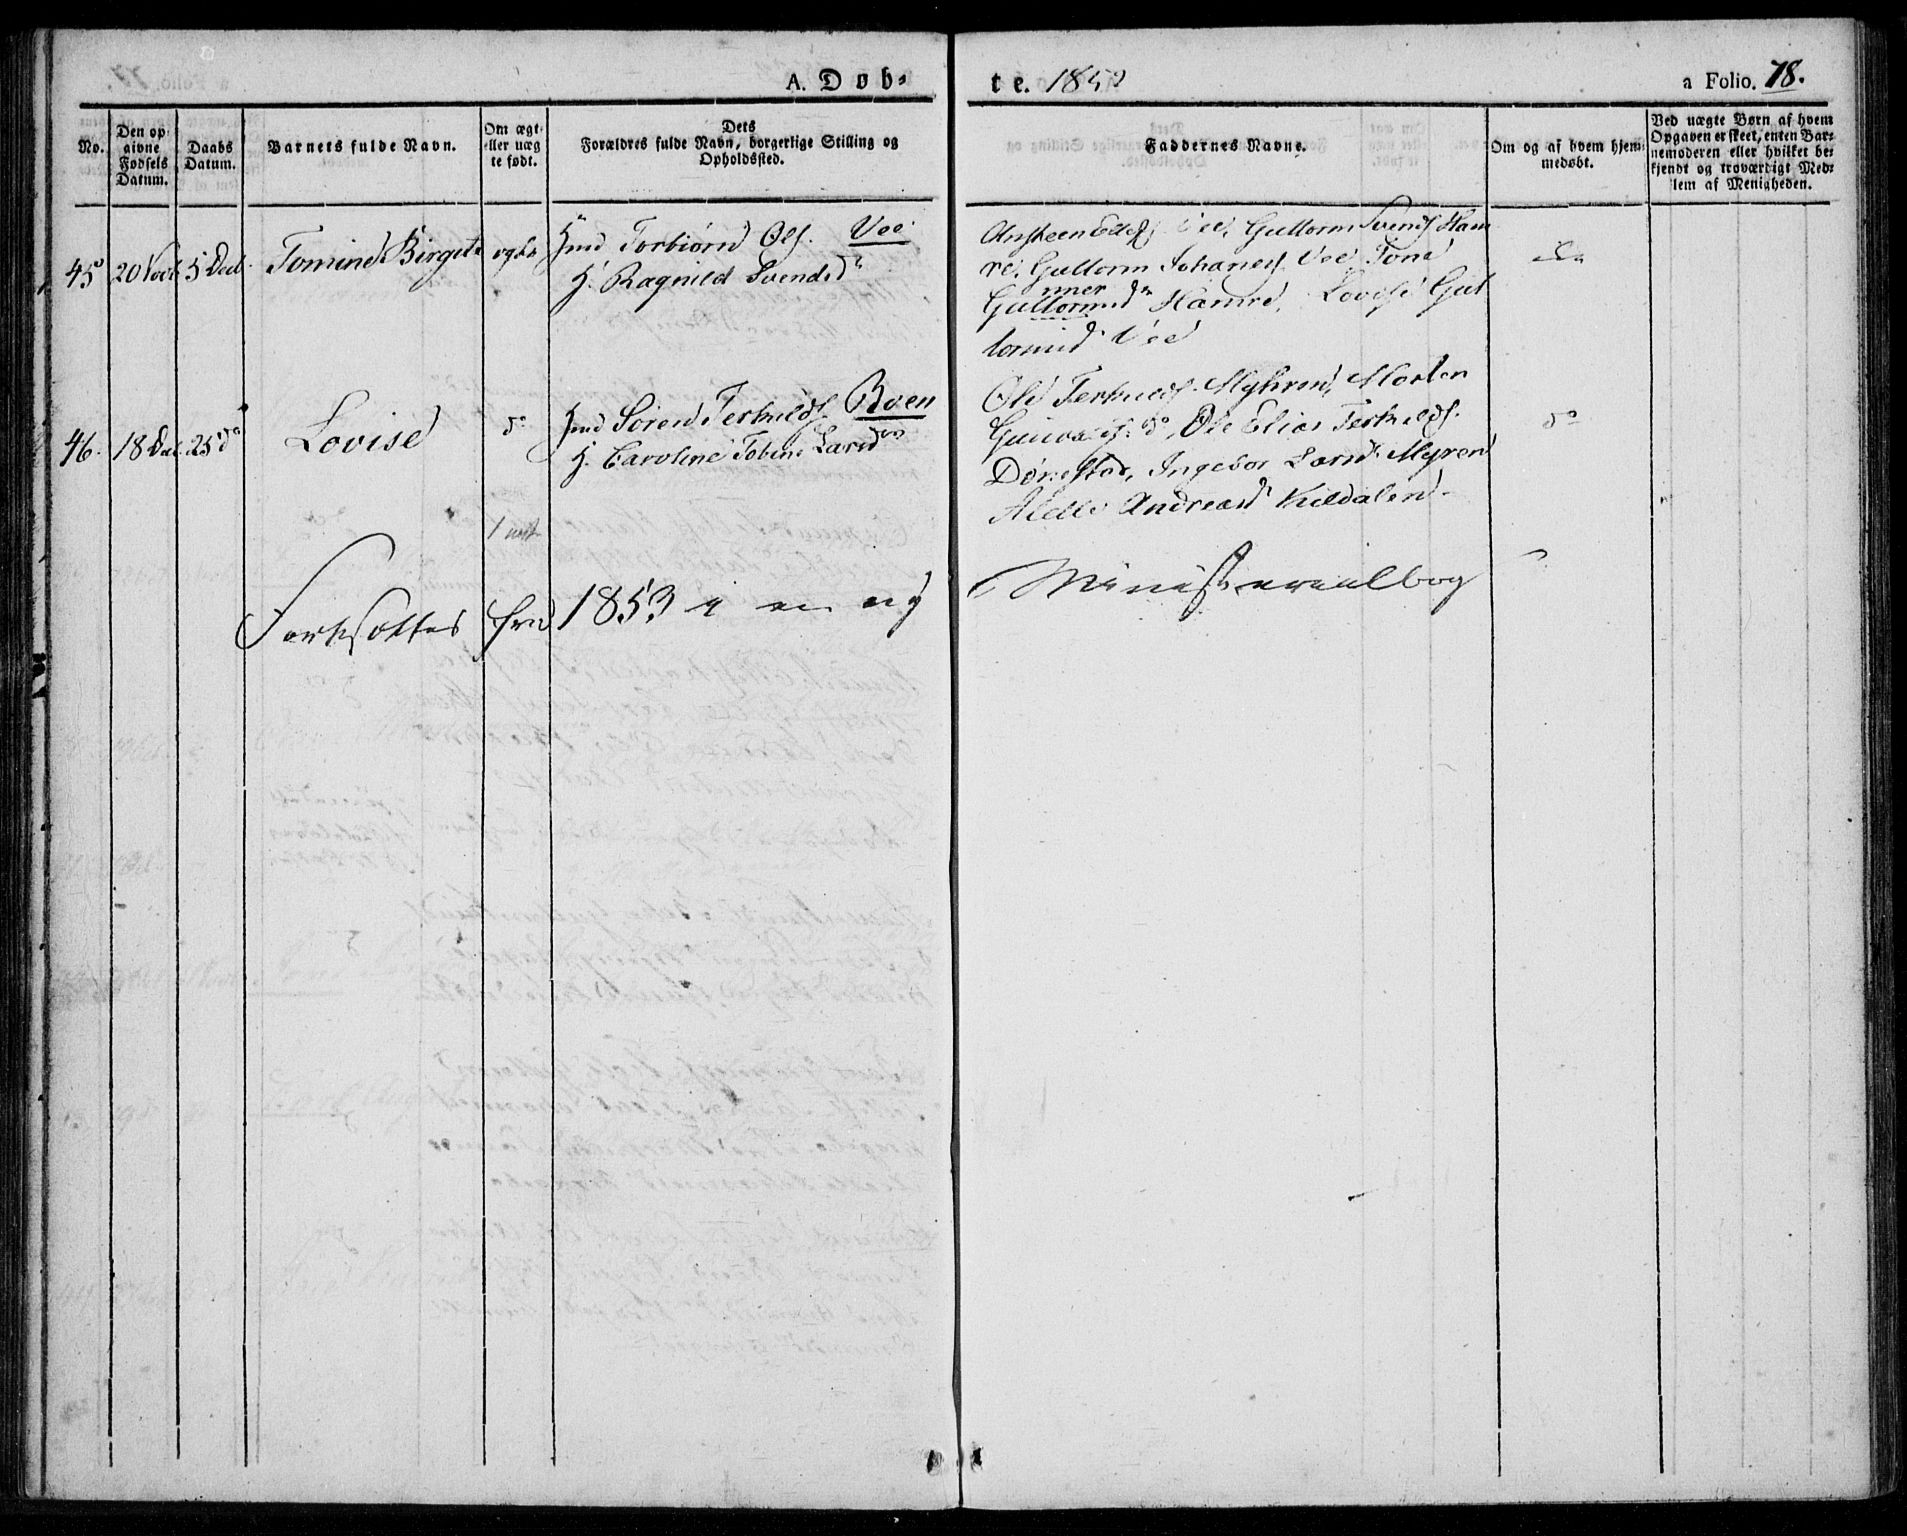 A. Døb-
te. 1852
a Folio. 78.
No.
Den opgivne Fødsels Datum.
Daabs Datum.
Barnets fulde Navn.
Om ægte eller uægte født.
Dets Forældres fulde Navn, borgerlige Stilling og Opholdssted.
Faddernes Navne.
Om og af hvem hjemmedøbt.
Ved uægte Børn af hvem Opgaven er skeet, enten Barnemoderen eller hvilket bekjendt og troværdigt Medlem af Menigheden.
45 20 Novb 5 Decb. Tomine Birgete ægte
Hmd Torbiørn Ols. Vee
H. Ragnild Svendsdr
Eilefs. Vee, Guttorm Svends. Ham
re, Guttorm Johanes. Vee, Tone
Guttormsdr Hamre, Lovise Gut
tormsd Vee
46. 18 Dec. 25 do Lovise do
Hmd Søren Terkilds. Roen
H. Caroline Tobine Larsdr
Ole Terkilds. Myhren, Morten
do, Ole Elias Terkilds.
Dønestad, Ingebor Larsd. Myren
Andreasd Kildalen.
do
Fortsættes fra 1853 i en ny Ministerialbog